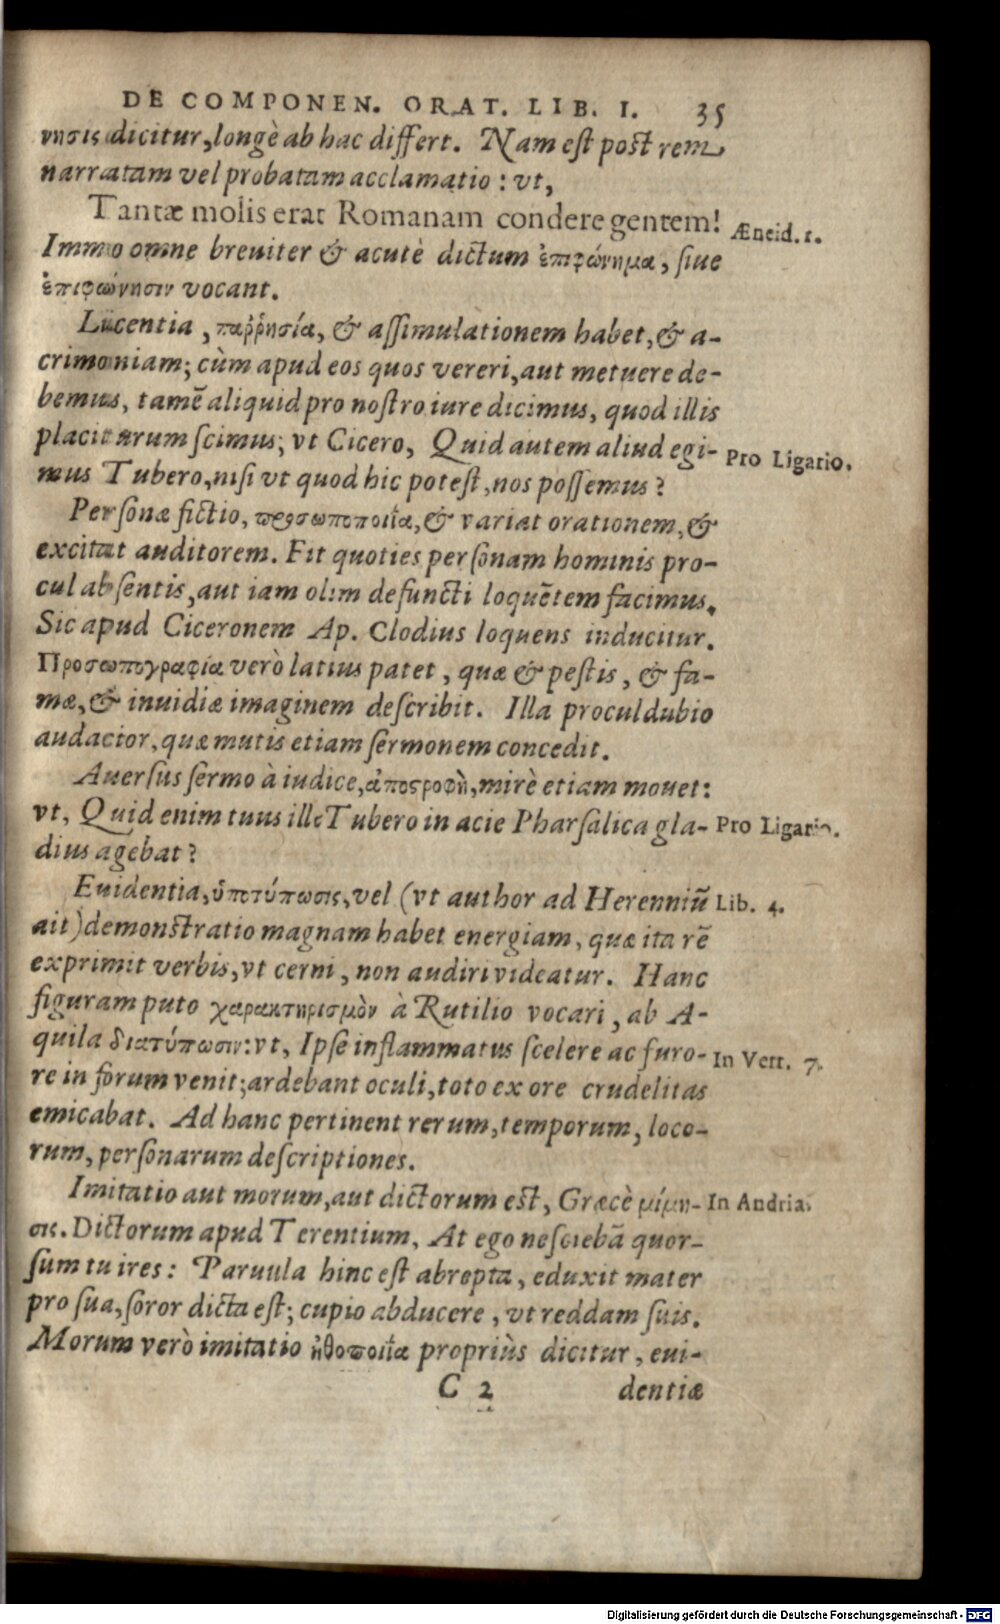 DE COMPONEN. ORAT. LIB. I. 35
νησις dicitur, longè ab hac differt. Nam est post rem
narratam vel probatam acclamatio: vt,
Tantæ molis erat Romanam condere gentem! Æneid. 1.
Immo omne breuiter & acutè dictum ἐπιφώνημα, siue
ἐπιφώνησιν vocant.
Licentia, παῤῥησία, & assimulationem habet, & a-
crimoniam; cùm apud eos quos vereri, aut metuere de-
bemus, tamē aliquid pro nostro iure dicimus, quod illis
placiturum scimus; vt Cicero, Quid autem aliud egi- Pro Ligario.
mus Tubero, nisi vt quod hic potest, nos possemus?
Personæ fictio, προσωποποιΐα, & variat orationem, &
excitat auditorem. Fit quoties personam hominis pro-
cul absentis, aut iam olim defuncti loquētem facimus.
Sic apud Ciceronem Ap. Clodius loquens inducitur.
Προσωπογραφία verò latius patet, quæ & pestis, & fa-
mæ, & inuidiæ imaginem describit. Illa proculdubio
audacior, quæ mutis etiam sermonem concedit.
Auersus sermo à iudice, ἀποστροφὴ, mirè etiam mouet:
vt, Quid enim tuus ille Tubero in acie Pharsalica gla- Pro Ligario.
dius agebat?
Euidentia, ὑποτύπωσις, vel (vt author ad Herenniū Lib. 4.
ait) demonstratio magnam habet energiam, quæ ita rē
exprimit verbis, vt cerni, non audiri videatur. Hanc
figuram puto χαρακτηρισμὸν à Rutilio vocari, ab A-
quila διατύπωσιν: vt, Ipse inflammatus scelere ac furo- In Verr. 7.
re in forum venit; ardebant oculi, toto ex ore crudelitas
emicabat. Ad hanc pertinent rerum, temporum, loco-
rum, personarum descriptiones.
Imitatio aut morum, aut dictorum est, Græcè μίμη- In Andria.
σις. Dictorum apud Terentium, At ego nesciebā quor-
sum tu ires: Paruula hinc est abrepta, eduxit mater
pro sua, soror dicta est; cupio abducere, vt reddam suis.
Morum verò imitatio ἠθοποιΐα propriùs dicitur, eui-
C 2 dentiæ
Digitalisierung gefördert durch die Deutsche Forschungsgemeinschaft - DFG